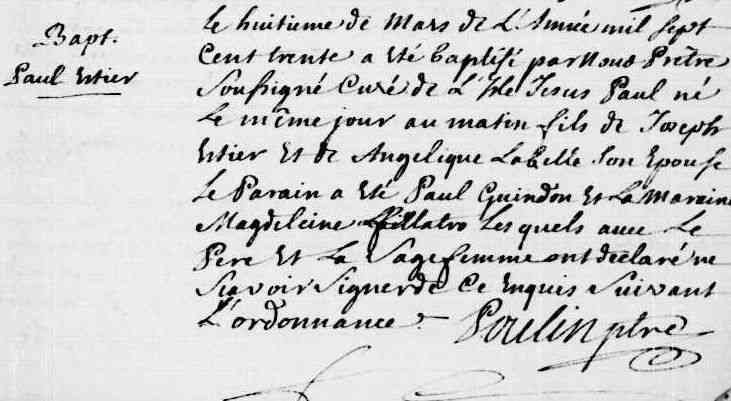 Bapt.
Paul Etier
Le huitieme de Mars de L'Année mil sept
Cent trente a eté baptisé par Nous Prêtre
Soussigné Curé de L'Isle Jesus Paul né
Le même jour au matin fils de Joseph
Etier Et de Angelique Labelle Son Epouse
Le Parain a eté Paul Guindon Et La Maraine
Magdeleine Les quels avec Le
Pere Et La Sage femme ont declaré ne
Sçavoir Signer de Ce Enquis Suivant
L'ordonnance
Poulin ptre